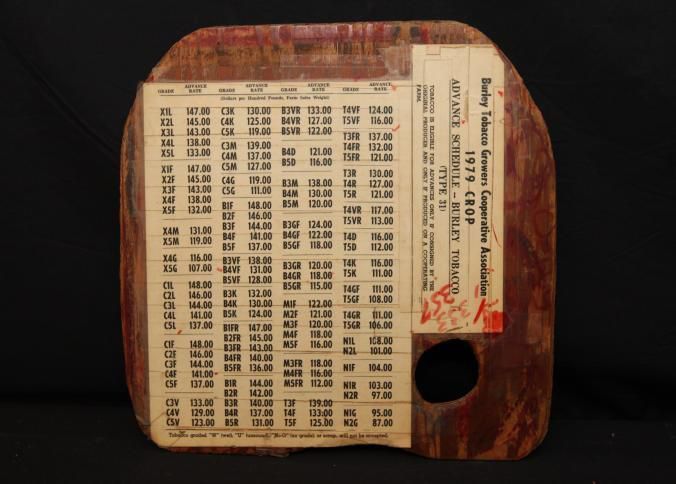 Burley Tobacco Growers Cooperative Association
1979 CROP
ADVANCE SCHEDULE - BURLEY TOBACCO
(TYPE 31)
TOBACCO IS ELIGIBLE FOR ADVANCES ONLY IF CONSIGNED BY THE
ORIGINAL PRODUCER AND ONLY IF PRODUCED ON A COOPERATING
FARM.
GRADE ADVANCE RATE GRADE ADVANCE RATE GRADE ADVANCE RATE GRADE ADVANCE RATE
(Dollars per Hundred Pounds, Farm Sales Weight)
X1L 147.00
X2L 145.00
X3L 143.00
X4L 138.00
X5L 133.00
X1F 147.00
X2F 145.00
X3F 143.00
X4F 138.00
X5F 132.00
X4M 131.00
X5M 119.00
X4G 116.00
X5G 107.00
C1L 148.00
C2L 146.00
C3L 144.00
C4L 141.00
C5L 137.00
C1F 148.00
C2F 146.00
C3F 144.00
C4F 141.00
C5F 137.00
C3V 133.00
C4V 129.00
C5V 123.00
C3K 130.00
C4K 125.00
C5K 119.00
C3M 139.00
C4M 137.00
C5M 127.00
C4G 119.00
C5G 111.00
B1F 148.00
B2F 146.00
B3F 144.00
B4F 141.00
B5F 137.00
B3VF 138.00
B4VF 131.00
B5VF 128.00
B3K 132.00
B4K 130.00
B5K 124.00
B1FR 147.00
B2FR 145.00
B3FR 143.00
B4FR 140.00
B5FR 136.00
B1R 144.00
B2R 142.00
B3R 140.00
B4R 137.00
B5R 131.00
B3VR 133.00
B4VR 127.00
B5VR 122.00
B4D 121.00
B5D 116.00
B3M 138.00
B4M 130.00
B5M 120.00
B3GF 124.00
B4GF 122.00
B5GF 118.00
B3GR 120.00
B4GR 118.00
B5GR 115.00
M1F 122.00
M2F 121.00
M3F 120.00
M4F 118.00
M5F 116.00
M3FR 118.00
M4FR 116.00
M5FR 112.00
T3F 139.00
T4F 133:00
T5F 125.00
T4VF 124.00
T5VF 116.00
T3FR 137.00
T4FR 132.00
T5FR 121.00
T3R 130.00
T4R 127.00
T5R 121.00
T4VR 117.00
T5VR 113.00
T4D 116.00
T5D 112.00
T4K 116.00
T5K 111.00
T4GF 111.00
T5GF 108.00
T4GR 111.00
T5GR 106.00
N1L 108.00
N2L 101.00
N1F 104.00
N1R 103.00
N2R 97.00
N1G 95.00
N2G 87.00
Tobacco graded "W" (wet), "U" (unsound), "No-G" (no grade), or scrap, will not be accepted.